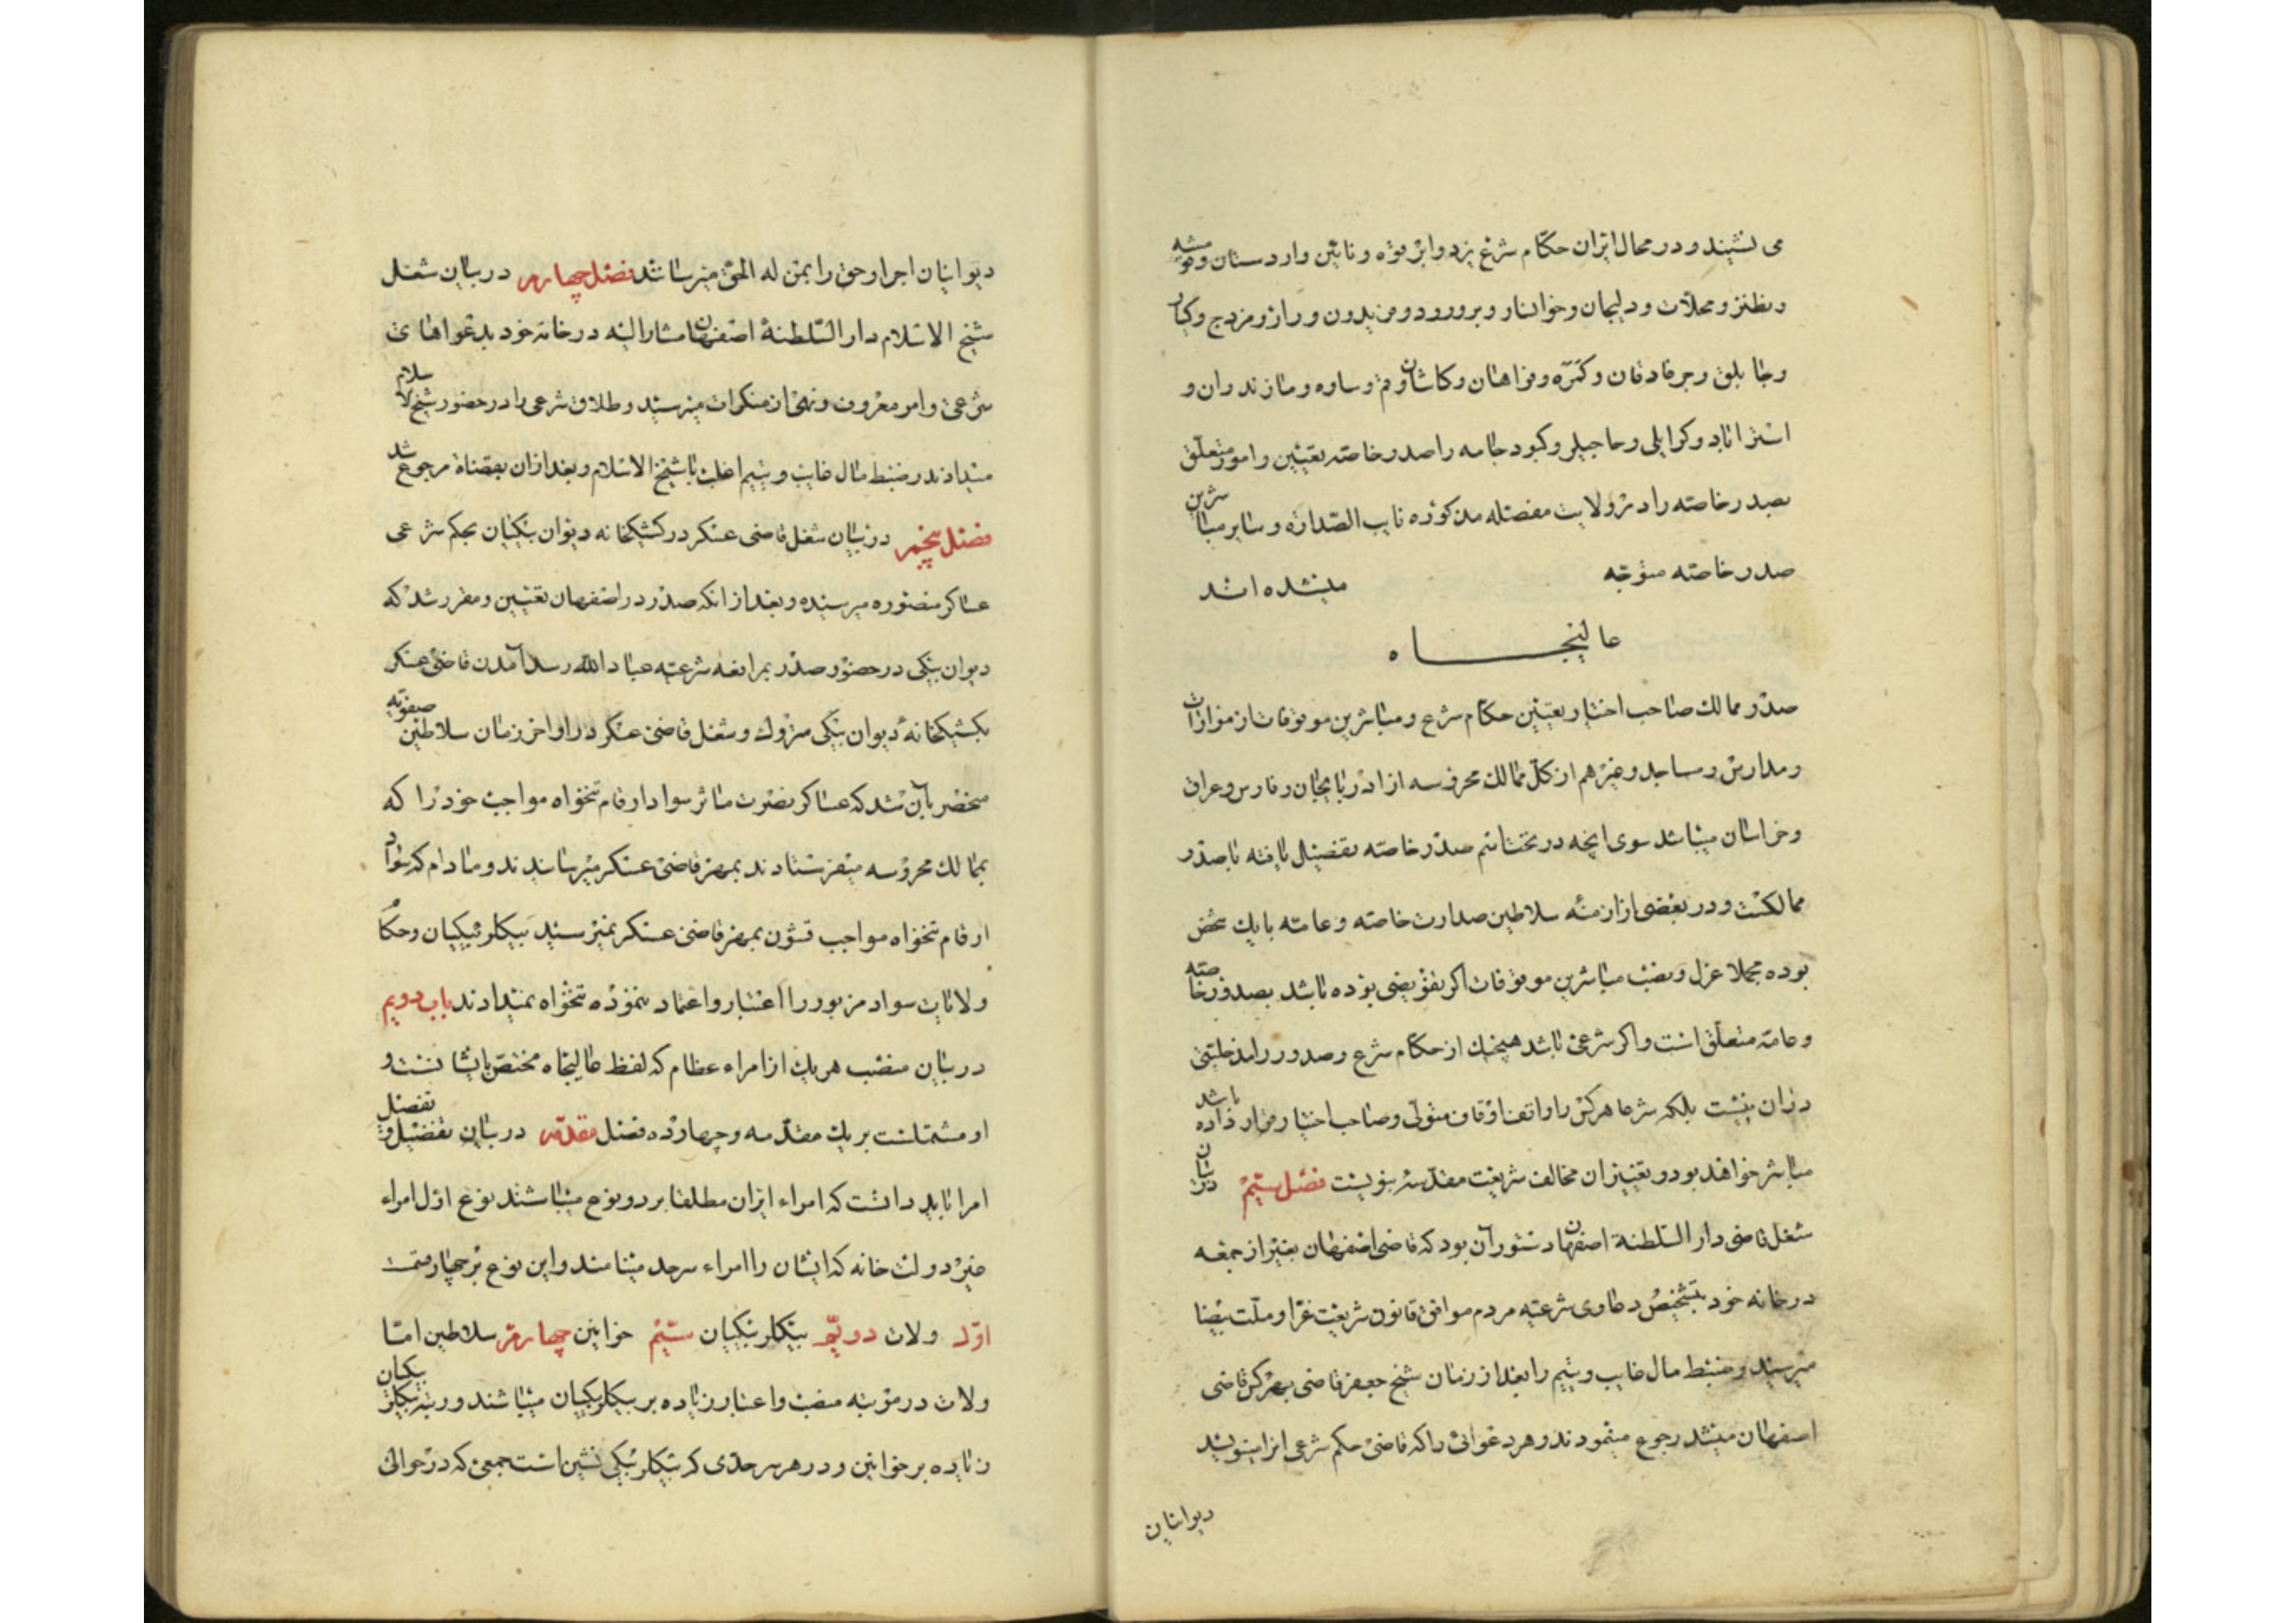 می نشیند و در محال ایران حکام شرع یزد و ابرقوه و نائین و اردستان و قومشه
و نطنز و محلات و دلیجان و خوانسار و بروررود و فریدون و رارز و مزدج و کیار
و جابلق و جرفادقان و کمره و فراهان و کاشان و قم و ساوه و مازندران و
استراباد و کرایلی و حاجیلر و کبود جامه را صدر خاصه تعیین و امور متعلق
بصدر خاصه را در ولایت مفصله مذکوره نایب الصداره و سایر مباشرین
صدر خاصه متوجه میشده اند
عالیجاه
صدر ممالک صاحب اختیار تعیین حکام شرع و مباشرین موقوفات از مزارات
و مدارس و مساجد و غیرهم از کل ممالک محروسه از اذربایجان و فارس و عراق
و خراسان میباشد سوی انچه در تحت اسم صدر خاصه تفصیل یافته با صدر
ممالکست و در بعضی از ازمنه سلاطین صدارت خاصه و عامه با یک شخص
بوده مجملا عزل و نصب مباشرین موقوفات اگر تفویضی بوده باشد بصدور خاصه
و عامه متعلق است و اگر شرعی باشد هیچیک از حکام شرع و صدور را مدخلیتی
در ان نیست بلکه شرعا هر کس را واقف اوقاف متولی و صاحب اختیار قرار داده باشد
مباشر خواهد بود و تعییران مخالف شریعت مقدسه نبویست فصل سیم در بیان
شغل قاضی دار السلطنة اصفهان دستور آن بود که قاضی اصفهان بغیر از جمعه
در خانه خود بتشخیص دعاوی شرعیه مردم موافق قانون شریعت غرا و ملت بیضا
میرسید و ضبط مال غایب و یتیم را بعد از زمان شیخ جعفر قاضی بهر کس قاضی
اصفهان میشد رجوع مینمودند و هر دعوائی را که قاضی حکم شرعی انرا مینویسد
دیوانیان
دیوانیان اجرا و حق را بمن له الحق میرسانند فصل چهارم در بیان شغل
شیخ الاسلام دار السلطنة اصفهان مشار الیه در خانه خود بدعواهای
شرعی و امر معروف و نهی از منکرات میرسید و طلاق شرعی را در حضور شیخ الاسلام
میدادند و ضبط مال غایب و یتیم اغلب با شیخ الاسلام و بعد از ان بقضاة مرجوع شد
فصل پنجم در بیان شغل قاضی عسکر در کشیکخانه دیوان بیکیان بحکم شرعی
عساکر منصوره میرسیده و بعد از انکه صدر در اصفهان تعیین و مقرر شد که
دیوان بیکی در حضور صدر بمرافعه شرعیه عباد الله رسد آمدن قاضی عسکر
بکشیکخانهٔ دیوان بیکی متروک و شغل قاضی عسکر در اواخر زمان سلاطین صفویه
منحصر بآن شد که عساکر نصرت مآثر سواد ارقام تنخواه مواجب خود را که
بممالک محروسه میفرستادند بمهر قاضی عسکر میرسانیدند و مادام که سواد
ارقام تنخواه مواجب قشون بمهر قاضی عسکر نمیرسید بیکلربیکیان و حکام
ولایات سواد مزبور را اعتبار و اعتماد ننموده تنخواه نمیدادند باب دویم
در بیان منصب هر یک از امراء عظام که لفظ عالیجاه مختص بایشانست و
او مشتملست بر یک مقدمه و چهارده فصل مقدمه در بیان تفضیل و تفصیل
امرا باید دانست که امراء ایران مطلقا بر دو نوع میباشند نوع اول امراء
غیر دولت خانه که ایشان را امراء سرحد مینامند و این نوع بر چهار قسمت
اول ولات دویم بیکلربیکیان سیم خوانین چهارم سلاطین اما
ولات در مرتبه منصب و اعتبار زیاده بر بیکلربیکیان میباشند و رتبه بیکلربیکیان
زیاده بر خوانین و در هر سرحدی که بیکلربیکی نشین است جمعی که در حوالی